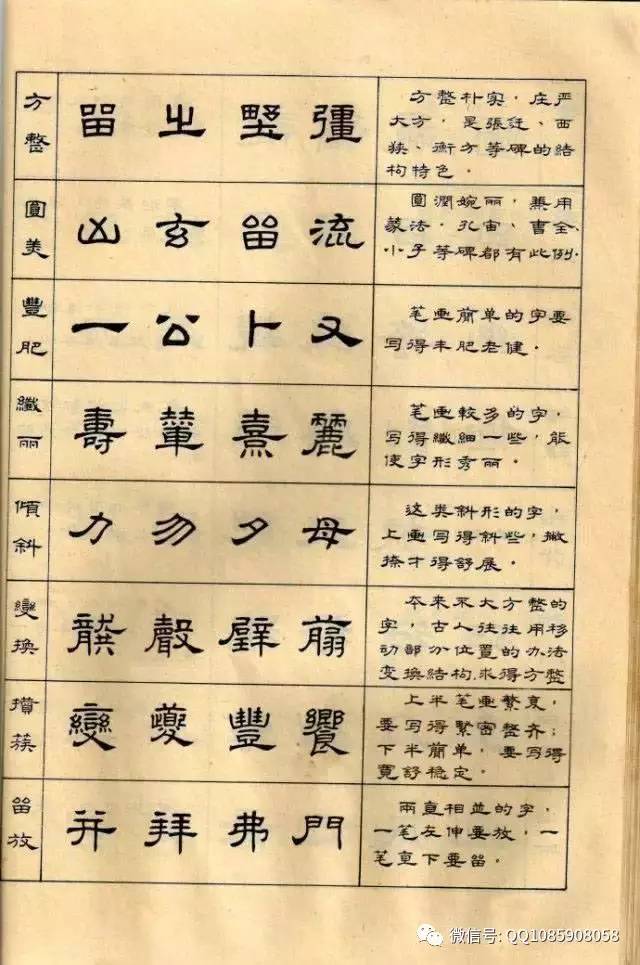 方整
留 之 彊
方整朴实，庄严
大方，是張迁、西
狭、衡方等碑的結
构特色。
圓美
凶 玄 留 流
圓潤婉丽，兼用
篆法，孔宙、曹全、
小子等碑都有此例。
豐肥
一 公 卜 又
笔画簡单的字要
写得丰肥老健。
纖丽
壽 輦 熹 麗
笔画較多的字，
写得纖細一些，能
使字形秀丽。
傾斜
力 勿 夕 母
这类斜形的字，
上画写得斜些，撇
捺才得舒展。
變换
龔 聲 翦
本来不大方整的
字，古人往往用移
动部分位置的办法
变换結构，求得方整
攢蔟
變 夔 豐 饗
上半笔画繁衷，
要写得緊密整齐；
下半簡单，要写得
寬舒稳定。
留放
并 拜 弗 門
兩直相並的字，
一笔左伸要放，一
笔直下要留。
微信号: QQ1085908058